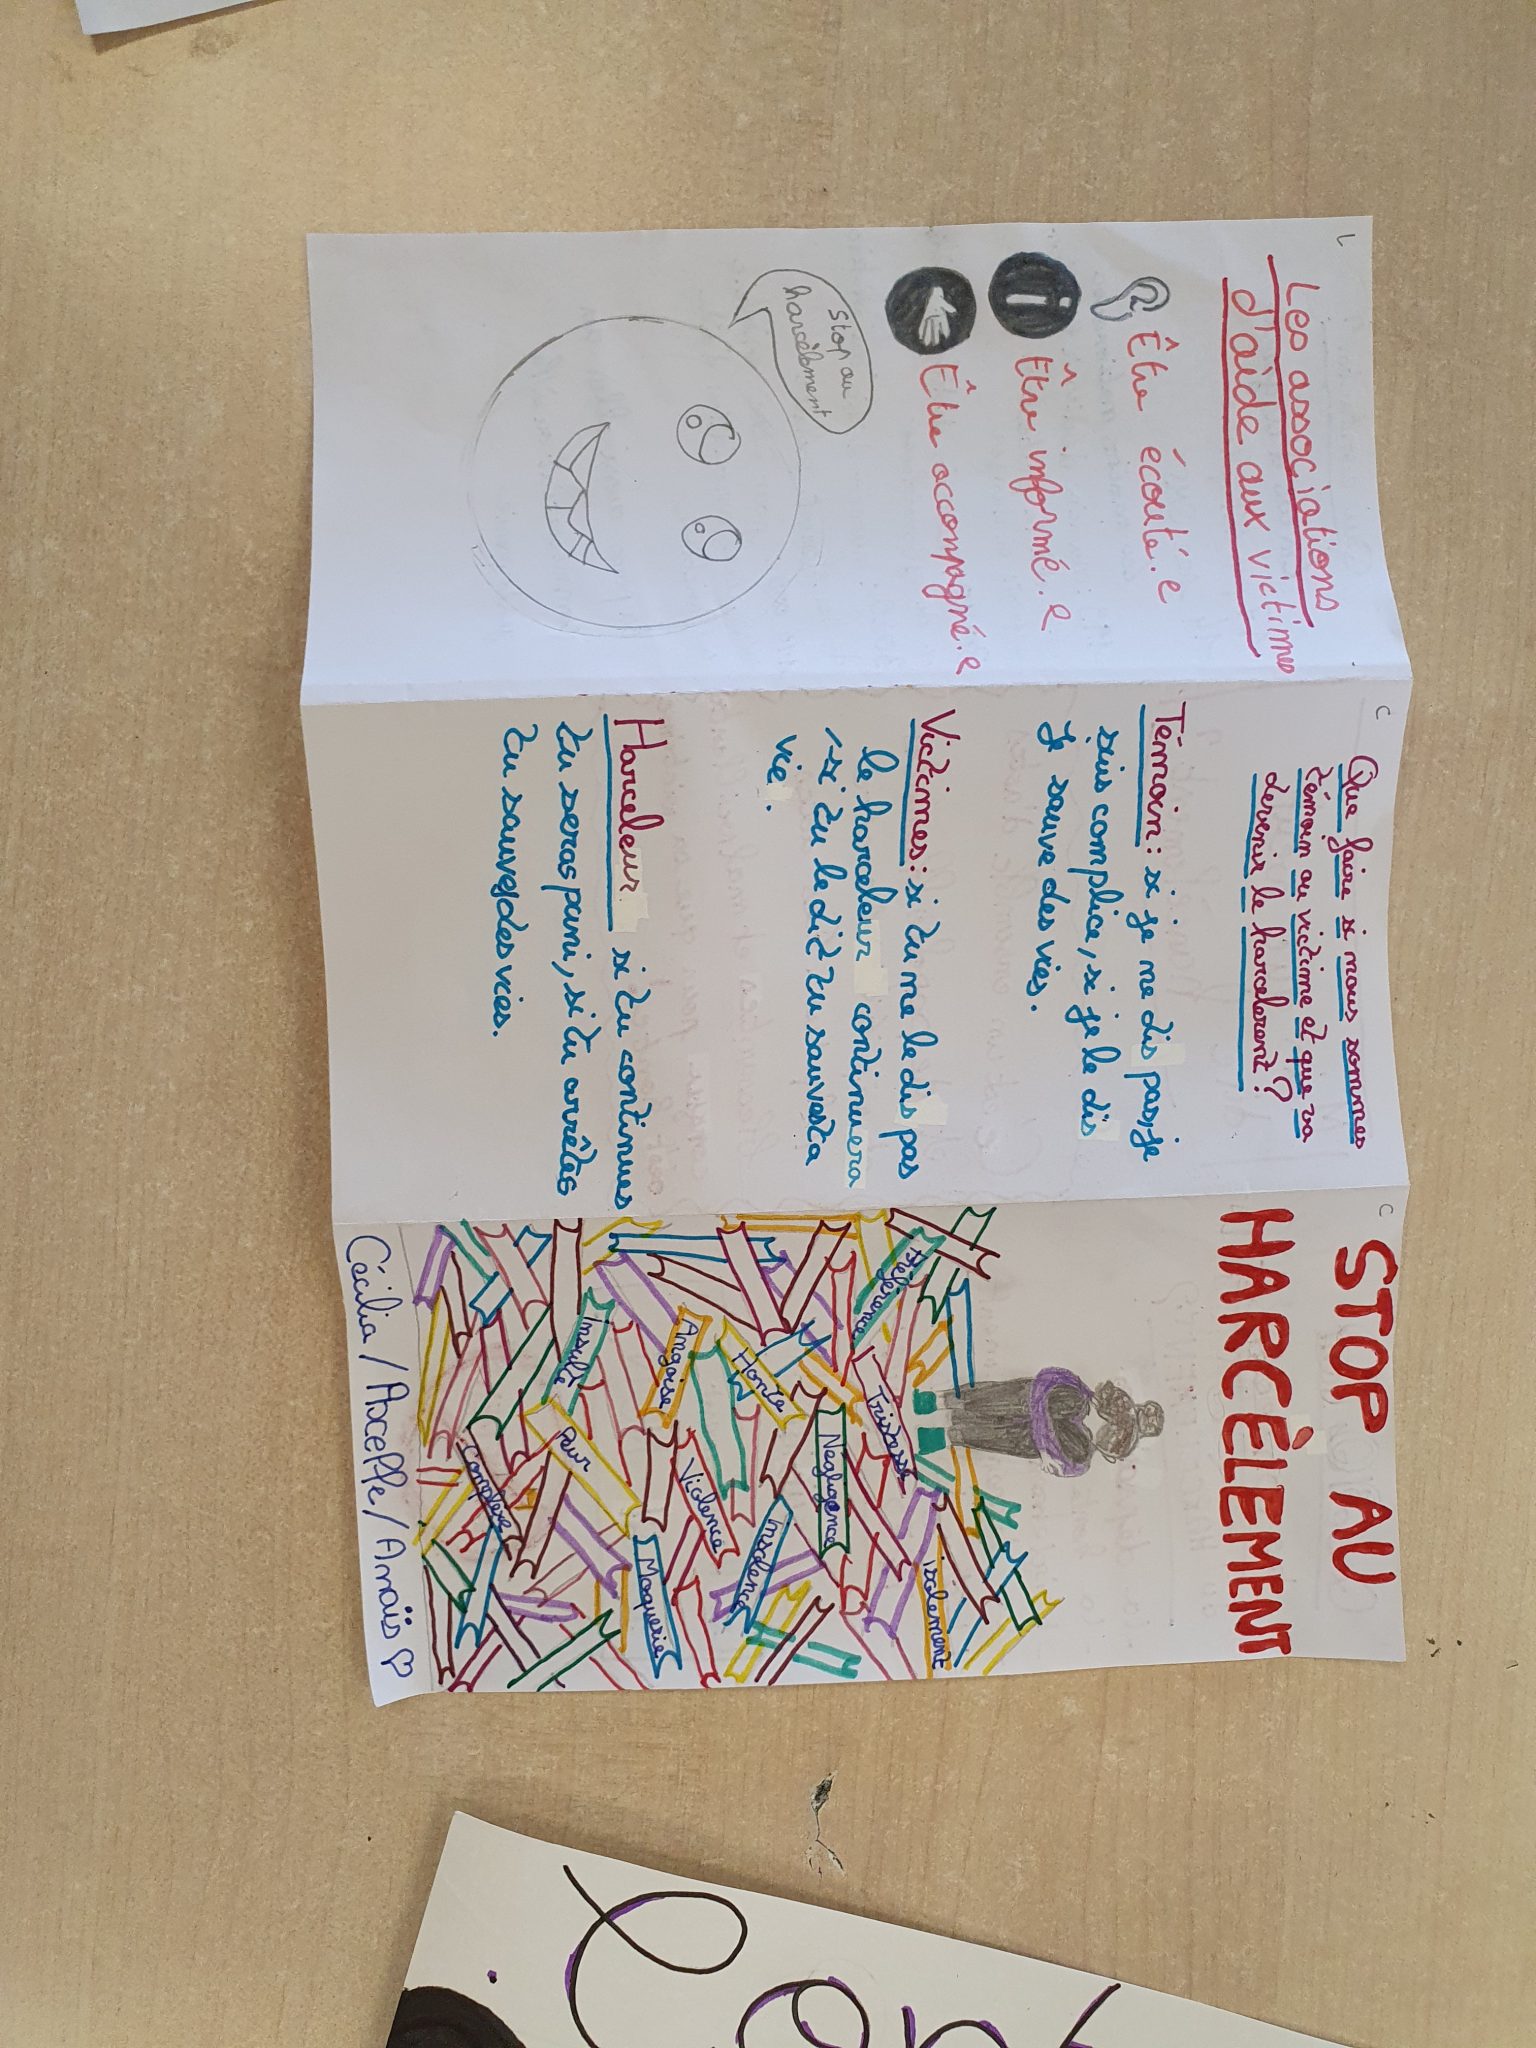 Les associations
d'aide aux victimes
Être écouté.e
Être informé.e
Être accompagné.e
Stop au
harcèlement
Que faire si nous sommes
témoin ou victime et que va
devenir le harcelerent?
Témoin : si je ne dis pas, je
suis complice, si je le dis
je sauve des vies.
Victimes : si tu me le dis pas
le harceleur continuera
, si tu le dit tu sauvesta
vie.
Harceleur si tu continues
tu seras puni, si tu arrêtes
tu sauves des vies.
STOP AU
HARCÈLEMENT
Préférence
Tristesse
isolement
Négligence
Honte
Insolence
Angoisse
Violence
Insulte
Peur
Moquerie
Complexe
Cécilia / Axelle / Anaïs ♡